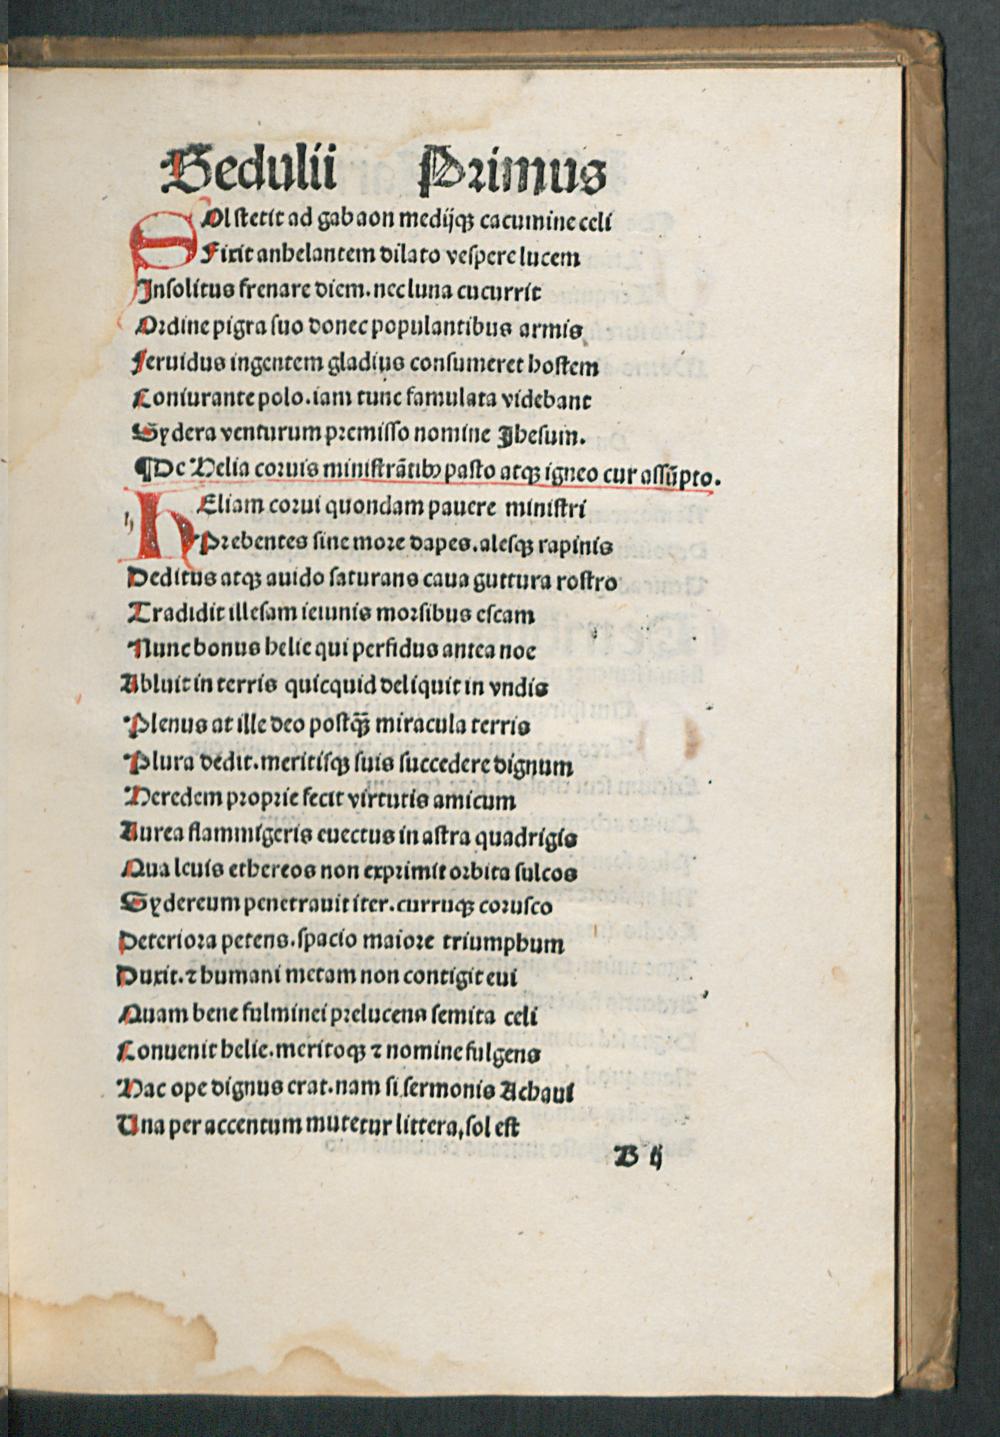 Sedulii Primus
SOl stetit ad gabaon medijqꝫ cacumine celi
Fixit anhelantem dilato vespere lucem
Insolitus frenare diem. nec luna cucurrit
Ordine pigra suo donec populantibus armis
Feruidus ingentem gladius consumeret hostem
Coniurante polo. iam tunc famulata videbant
Sydera venturum premisso nomine Jhesum.
¶De Helia coruis ministrãtibꝰ pasto atqꝫ igneo cur assũpto.
HEliam corui quondam pauere ministri
Prebentes sine more dapes. alesqꝫ rapinis
Deditus atqꝫ auido saturans caua guttura rostro
Tradidit illesam ieiunis morsibus escam
Nunc bonus helie qui perfidus antea noe
Abluit in terris quicquid deliquit in vndis
Plenus at ille deo postqꝫ̃ miracula terris
Plura dedit. meritisqꝫ suis succedere dignum
Heredem proprie fecit virtutis amicum
Aurea flammigeris euectus in astra quadrigis
Qua leuis ethereos non exprimit orbita sulcos
Sydereum penetrauit iter. curruqꝫ corusco
Deteriora petens. spacio maiore triumphum
Duxit. ⁊ humani metam non contigit eui
Quam bene fulminei prelucens semita celi
Conuenit helie. meritoqꝫ ⁊ nomine fulgens
Hac ope dignus erat. nam si sermonis Achaui
Una per accentum mutetur littera, sol est
B ij